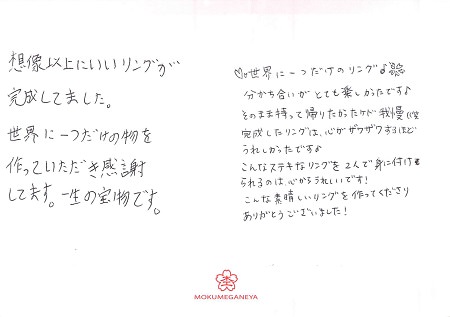 想像以上にいいリングが
完成してました。
世界に一つだけの物を
作っていただき感謝
してます。一生の宝物です。
♡世界に一つだけのリング♪
分かち合いがとても楽しかったです♪
そのまま持って帰りたかったケド我慢
完成したリングは、心がザワザワするほど
うれしかったです♪
こんなステキなリングを2人で身に付け
られるのは、心からうれしいです!
こんな素晴しいリングを作ってくださり
ありがとうございました!
MOKUMEGANEYA